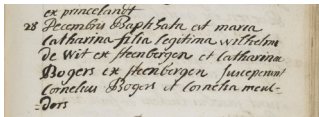 ex princelandt
28 Decembris Baptisata est maria
Catharina filia legitima wilhelmi
De wit ex steenbergen et Catharinae
Bogers ex steenbergen susceperunt
Cornelius Bogers et Cornelia meul-
-ders